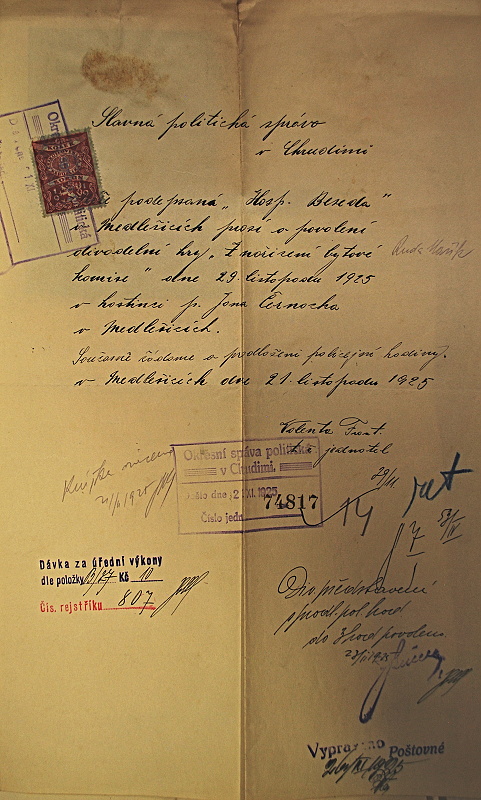 Slavná politická správo
v Chrudimi
podepsaná „Hosp. Beseda“
Medlešicích prosí o povolení
divadelní hry „Z nařízení bytové
komise“ dne 29. listopadu 1925
v hostinci p. Jana Černocha
v Medlešicích.
Současně žádáme o prodloužení policejní hodiny.
v Medlešicích dne 21. listopadu 1925
Valenta Frant.
t. č. jednatel
Okresní správa politická
v Chrudimi.
Došlo dne 21. XI. 1925
Číslo jedn. 74817
29/11.
14
Dávka za úřední výkony
dle položky B/27 Kč 10
Čís. rejstříku 807
Divo představení
i prodl. pol. hod
do 3 hod povoleno
Vypraveno Poštovné